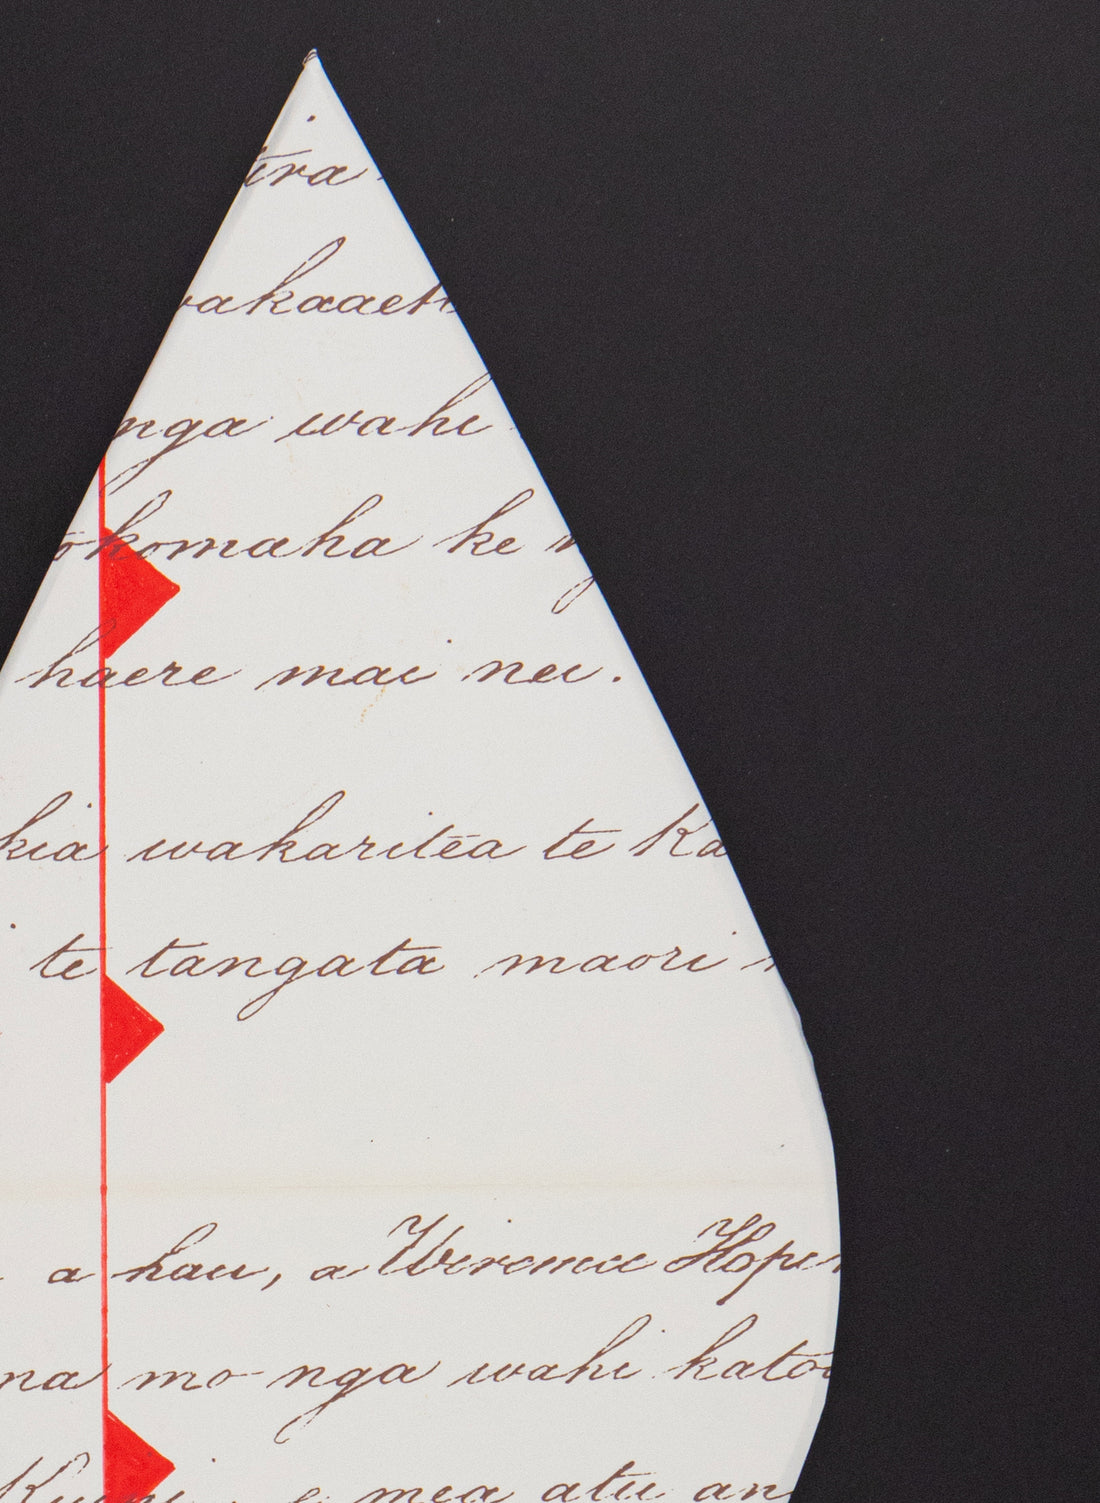 ira
wakaaeti
nga wahi
okomaha ke
haere mai nei.
kia wakaritea te Ka
te tangata maori
a hau, a Wiremu Hop
na mo nga wahi katoa
Kuini e mea atu an